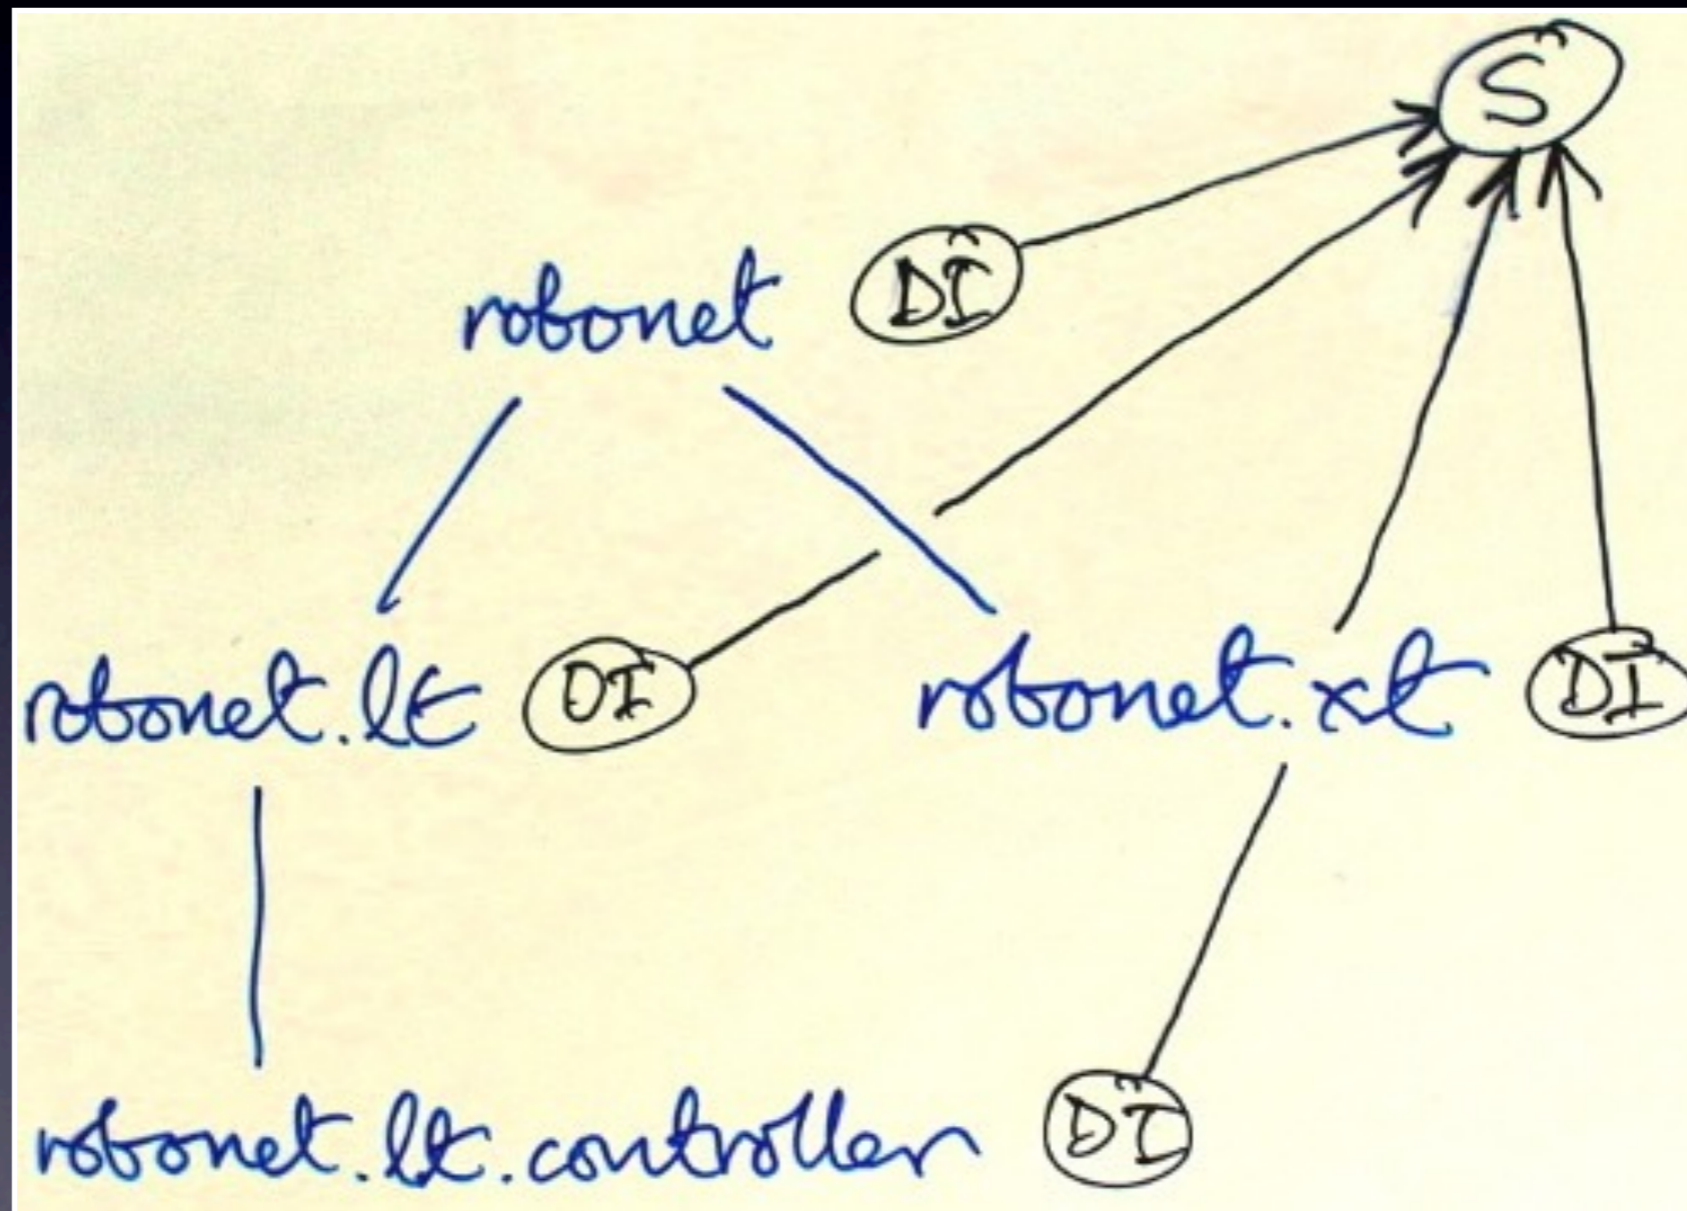 S
robonet DI
robonet.lt DI robonet.xt DI
robonet.lt.controller DI